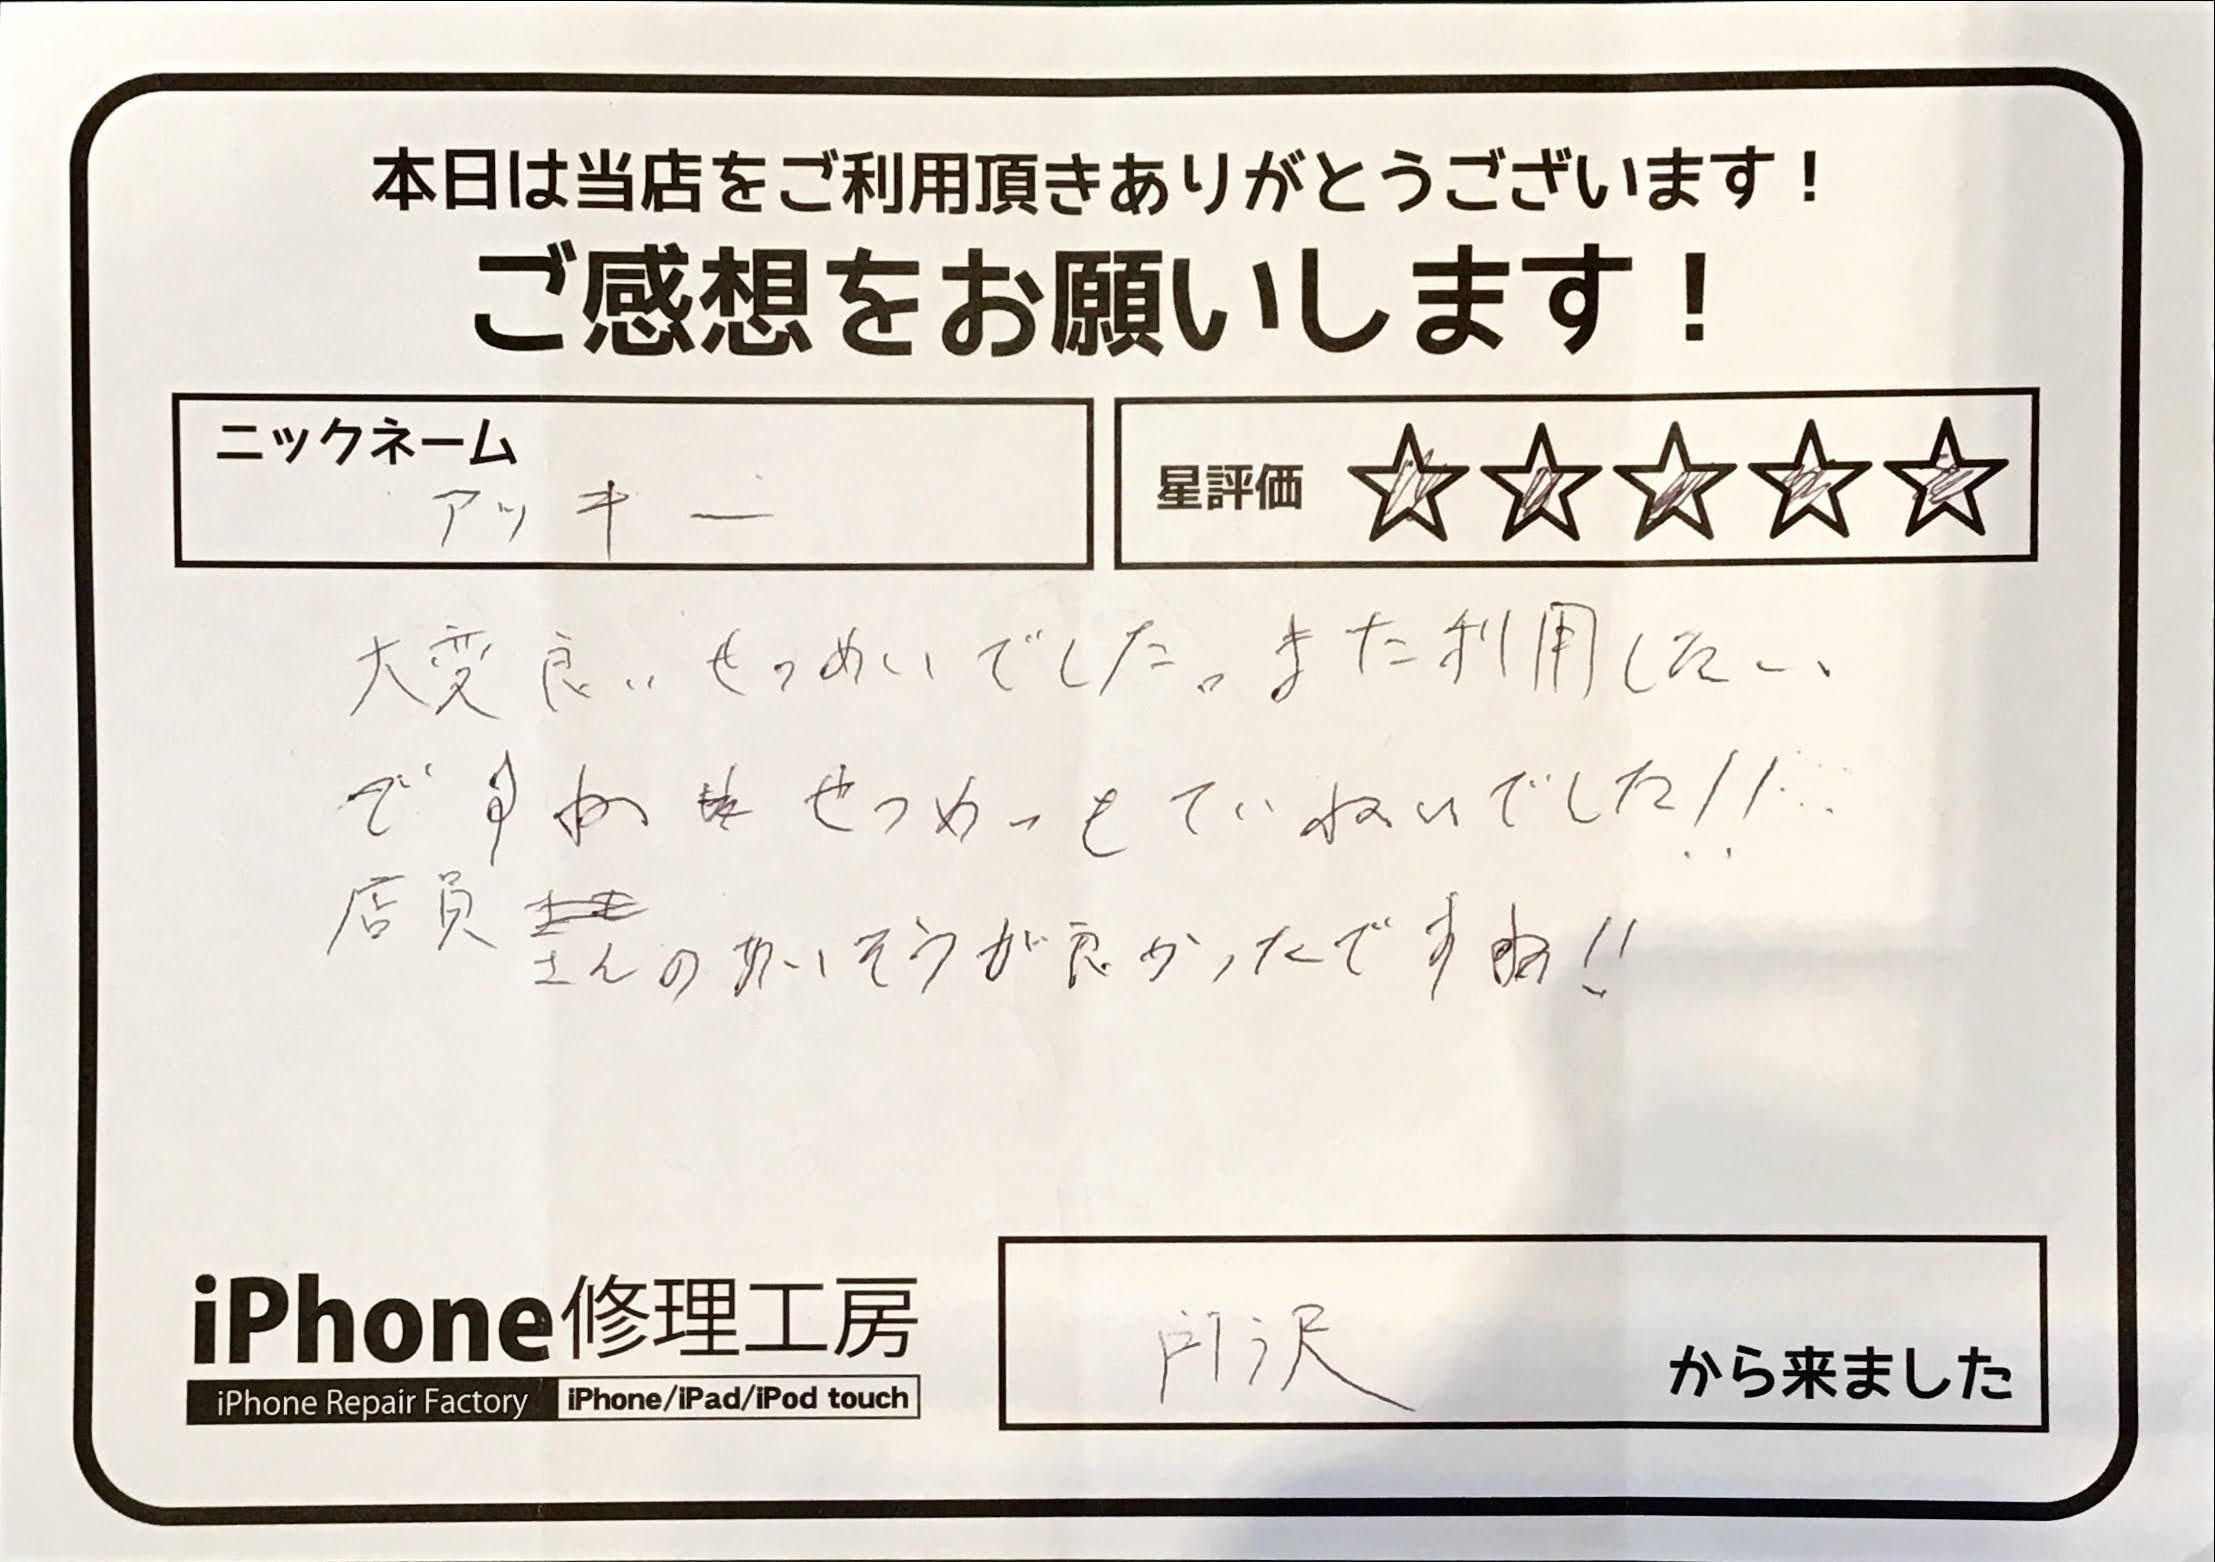 本日は当店をご利用頂きありがとうございます！
ご感想をお願いします！
ニックネーム
アッキー
星評価 ☆☆☆☆☆
大変良いせつめいでした。また利用したい
ですね せつめいもていねいでした!!
店員
さんのあいそうが良かったですね!!
iPhone修理工房
iPhone Repair Factory iPhone/iPad/iPod touch
所沢 から来ました